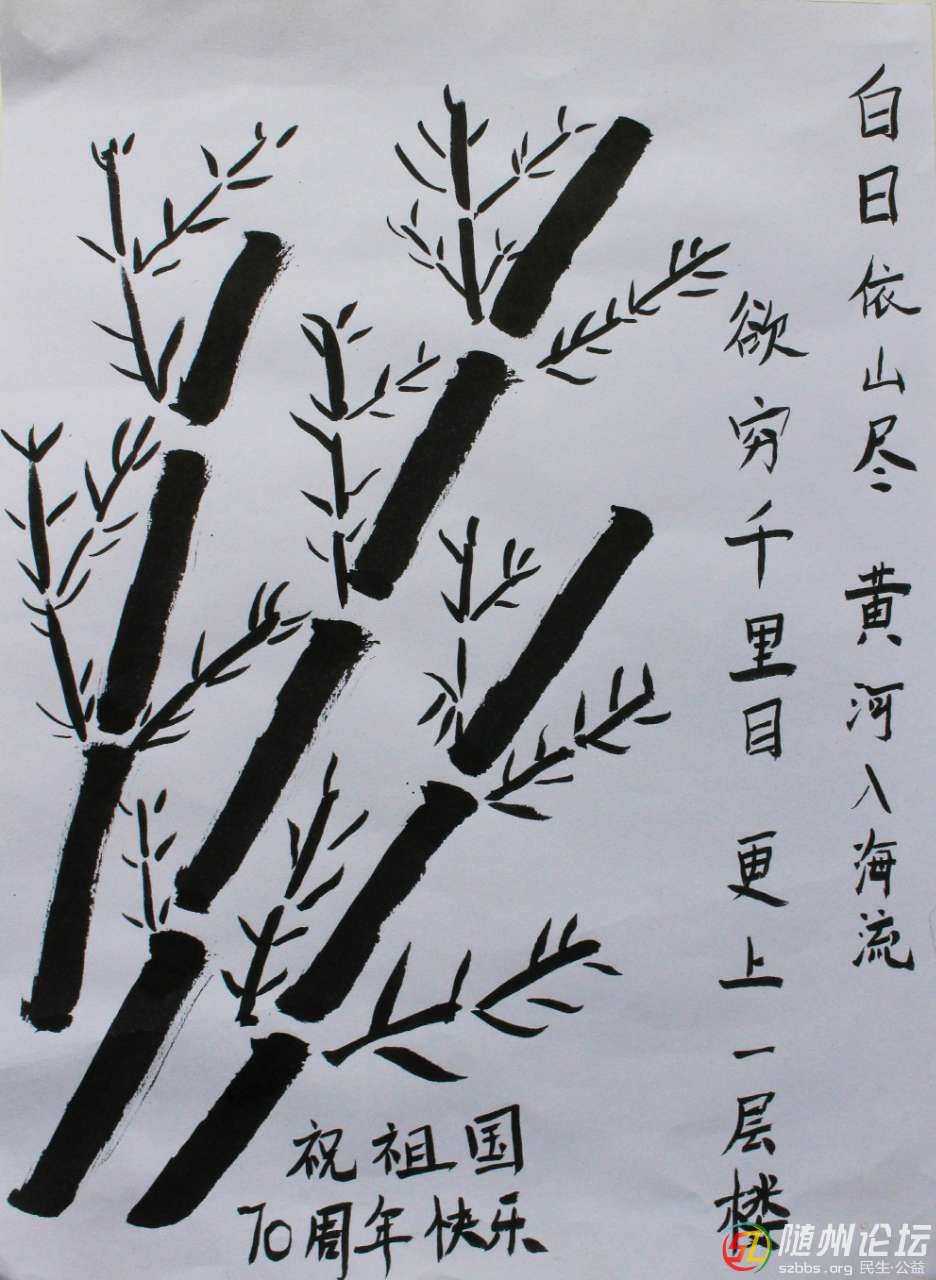 自日依山尽 黄河入海流
欲穷千里目 更上一层楼
祝祖国
70周年快乐
随州论坛
szbbs.org 民生·公益